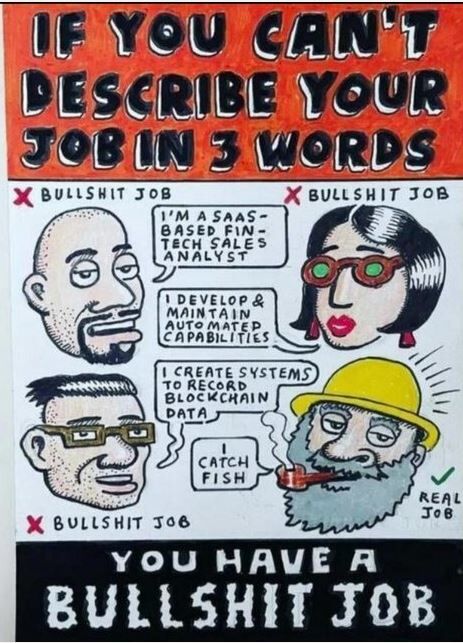 IF YOU CAN'T
DESCRIBE YOUR
JOB IN 3 WORDS
X BULLSHIT JOB
X BULLSHIT JOB
I'M A SAAS-
BASED FIN-
TECH SALES
ANALYST
I DEVELOP &
MAINTAIN
AUTOMATED
CAPABILITIES
I CREATE SYSTEMS
TO RECORD
BLOCKCHAIN
DATA
I
CATCH
FISH
REAL
JOB
X BULLSHIT JOB
YOU HAVE A
BULLSHIT JOB